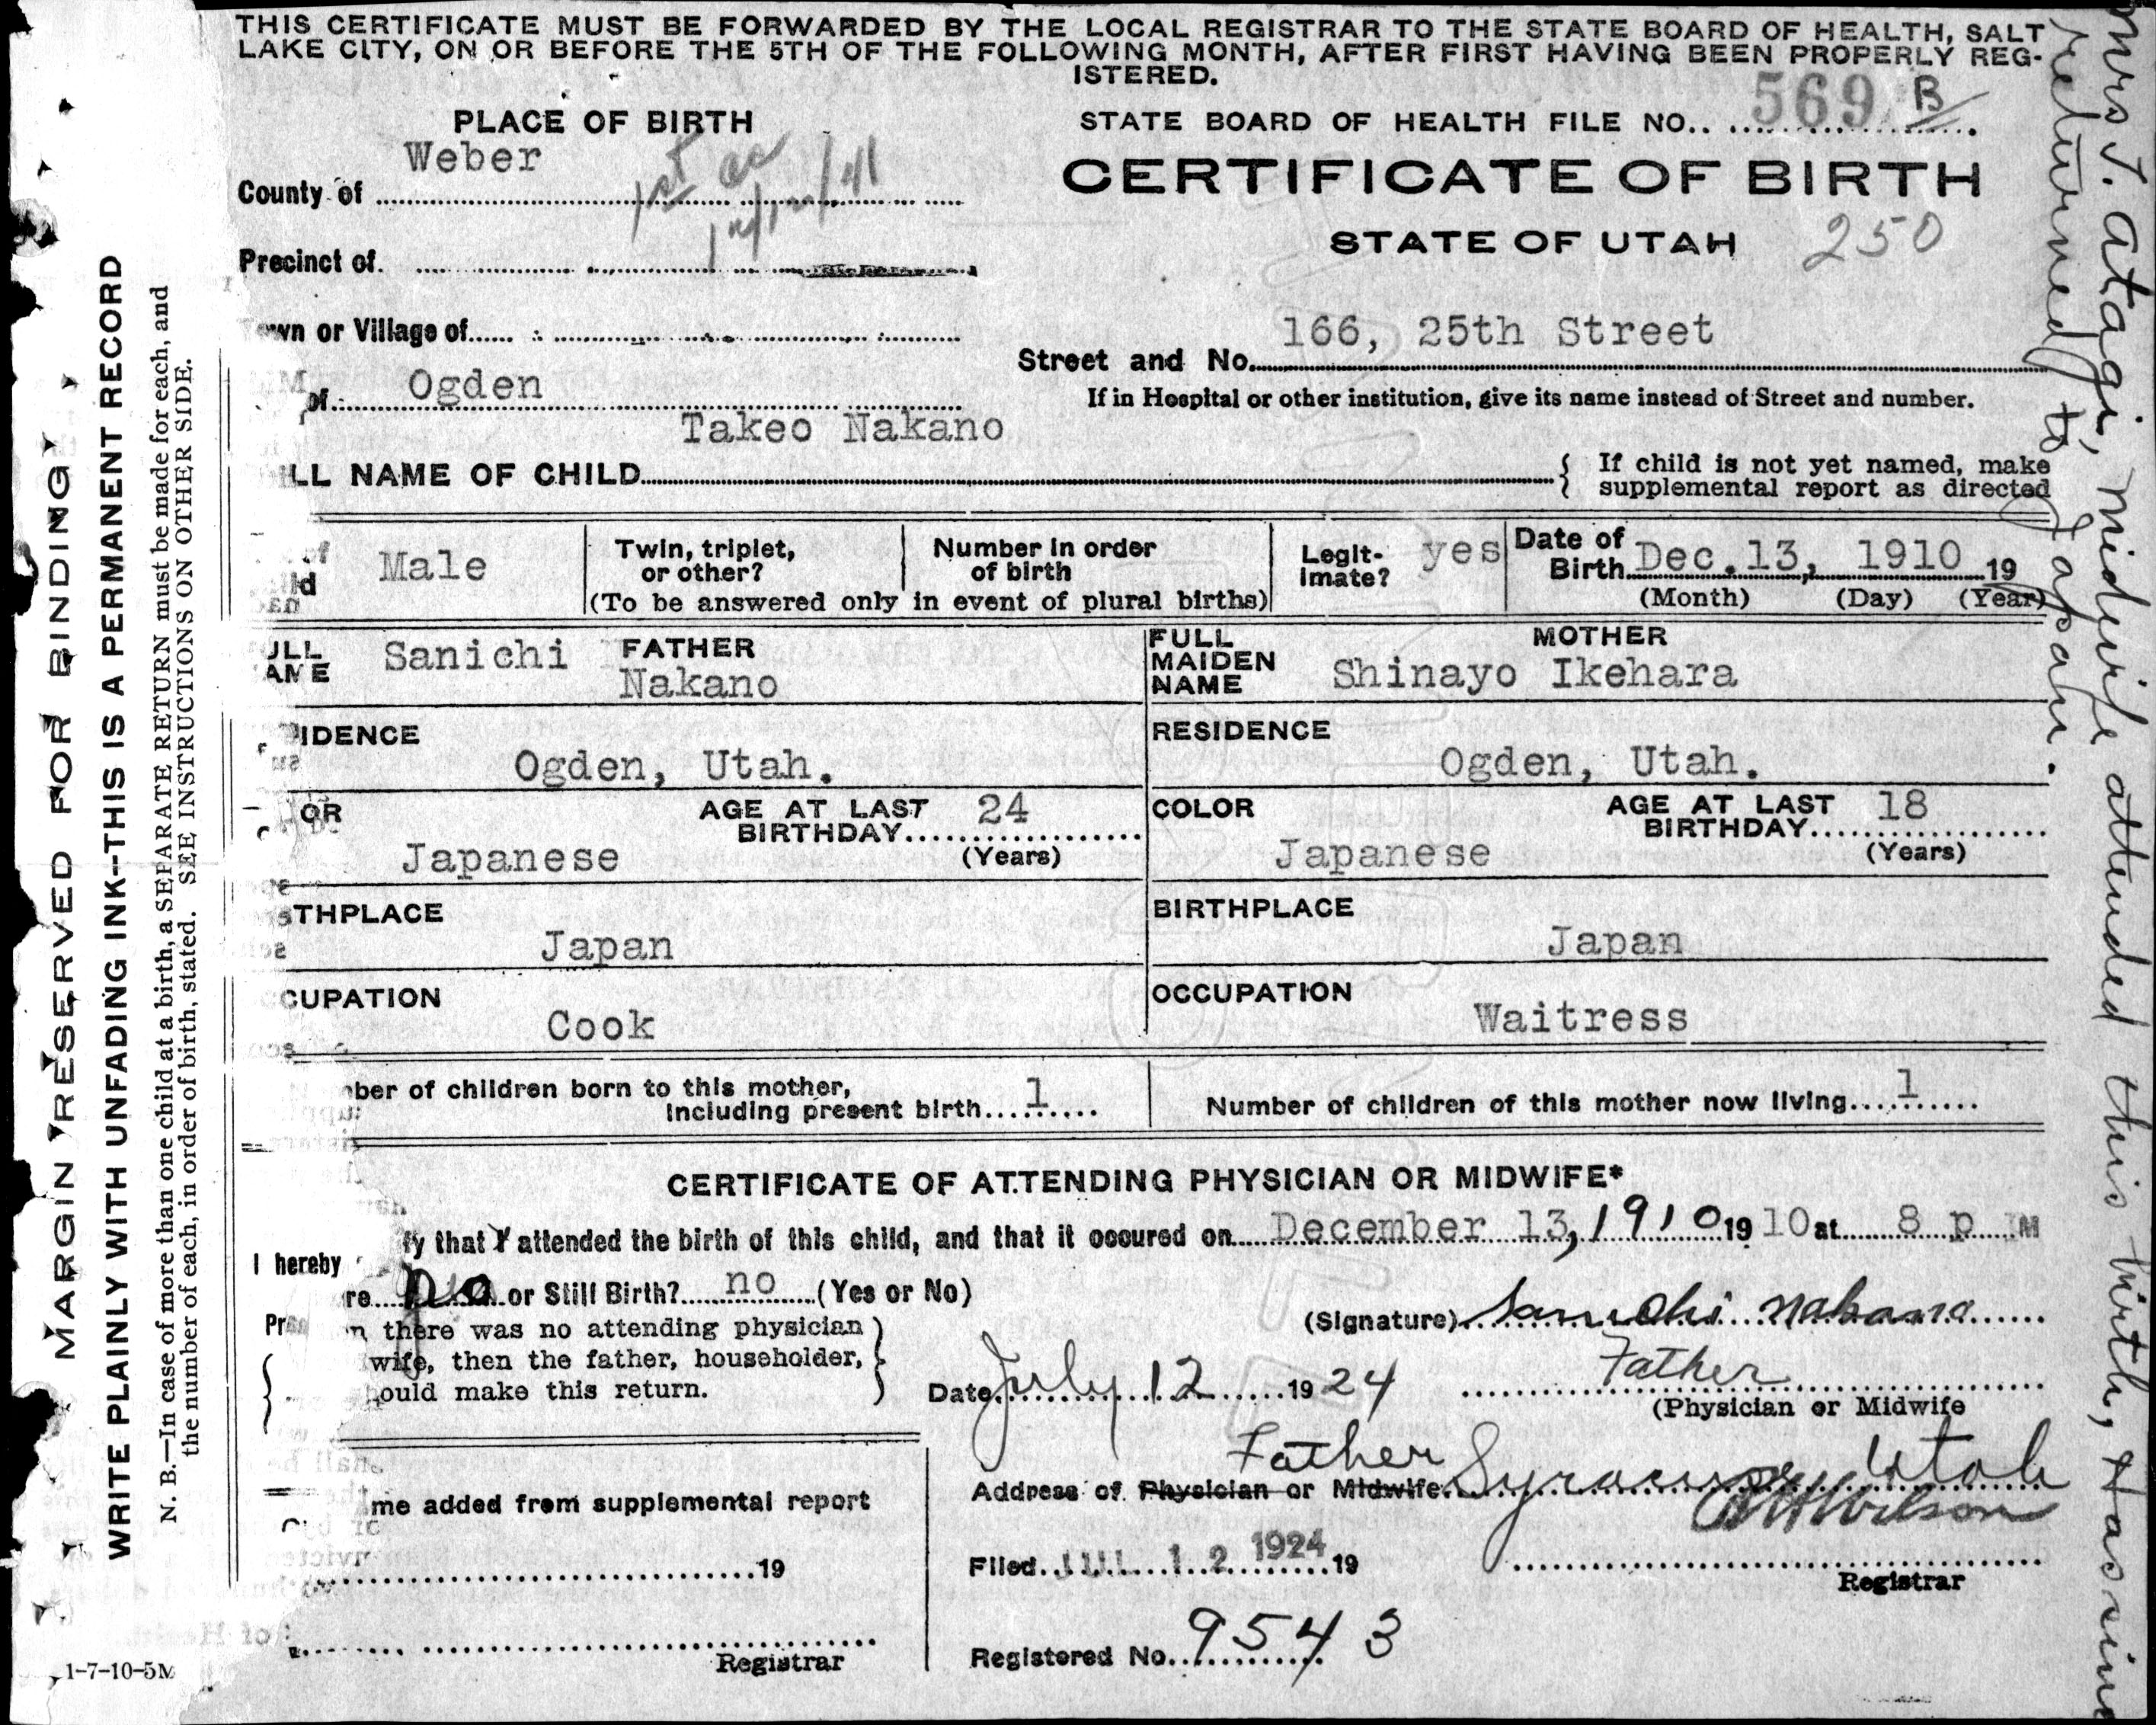 THIS CERTIFICATE MUST BE FORWARDED BY THE LOCAL REGISTRAR TO THE STATE BOARD OF HEALTH, SALT
LAKE CITY, ON OR BEFORE THE 5TH OF THE FOLLOWING MONTH, AFTER FIRST HAVING BEEN PROPERLY REG-
ISTERED.
PLACE OF BIRTH
STATE BOARD OF HEALTH FILE NO. 569 B
County of Weber
1st cc
CERTIFICATE OF BIRTH
STATE OF UTAH 250
Precinct of
wn or Village of
Street and No. 166, 25th Street
of Ogden
If in Hospital or other institution, give its name instead of Street and number.
LL NAME OF CHILD Takeo Nakano
If child is not yet named, make
supplemental report as directed
Male
Twin, triplet,
or other?
Number in order
of birth
(To be answered only in event of plural births)
Legit-
imate? yes
Date of
Birth Dec. 13, 1910 19
(Month) (Day) (Year)
ULL
AME
FATHER
Sanichi Nakano
FULL
MAIDEN
NAME
MOTHER
Shinayo Ikehara
IDENCE
Ogden, Utah.
RESIDENCE
Ogden, Utah.
OR
Japanese
AGE AT LAST
BIRTHDAY 24
(Years)
COLOR
Japanese
AGE AT LAST
BIRTHDAY 18
(Years)
THPLACE
Japan
BIRTHPLACE
Japan
CUPATION
Cook
OCCUPATION
Waitress
ber of children born to this mother,
including present birth 1
Number of children of this mother now living 1
CERTIFICATE OF ATTENDING PHYSICIAN OR MIDWIFE*
I hereby fy that I attended the birth of this child, and that it occured on December 13, 1910 19 10 at 8 p M
re no or Still Birth? no (Yes or No)
n there was no attending physician
wife, then the father, householder,
ould make this return.
(Signature) Sanichi Nakano
Date July 12 19 24
Father
(Physician or Midwife
Father
Address of Physician or Midwife Syracuse, Utah
me added from supplemental report
19
Registrar
Filed JUL 12 1924 19
Wilson
Registrar
Registered No. 9543
1-7-10-5M
MARGIN RESERVED FOR BINDING
WRITE PLAINLY WITH UNFADING INK—THIS IS A PERMANENT RECORD
N. B.—In case of more than one child at a birth, a SEPARATE RETURN must be made for each, and
the number of each, in order of birth, stated. SEE INSTRUCTIONS ON OTHER SIDE.
Mrs J. Atagi, midwife attended this birth, Has since
returned to Japan.